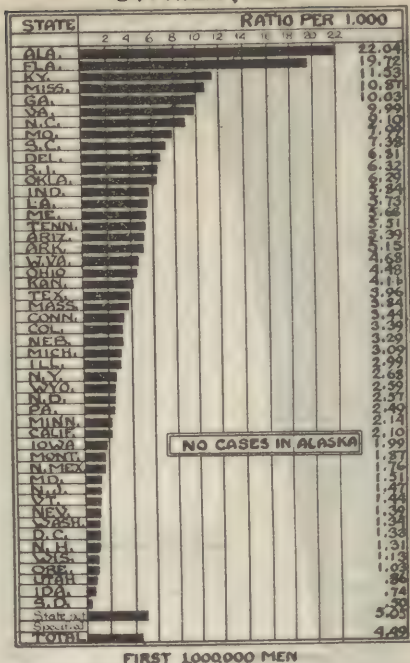 STATE RATIO PER 1.000
2 4 6 8 10 12 14 16 18 20 22
ALA. 22.04
FLA. 19.72
KY. 11.53
MISS. 10.87
GA. 10.03
VA. 9.99
N.C. 9.10
MO. 7.92
S.C. 7.38
DEL. 6.81
R.I. 6.32
OKLA. 6.29
IND. 5.84
LA. 5.73
ME. 5.68
TENN. 5.51
ARIZ. 5.39
ARK. 5.15
W.VA. 4.68
OHIO 4.48
KAN. 4.16
TEX. 3.96
MASS. 3.84
CONN. 3.44
COL. 3.39
NEB. 3.29
MICH. 3.09
ILL. 2.99
N.Y. 2.68
WYO. 2.59
N.D. 2.57
PA. 2.49
MINN. 2.14
CALIF. 2.10
IOWA 1.99
NO CASES IN ALASKA
MONT. 1.87
N.MEX. 1.76
MD. 1.51
N.J. 1.47
VT. 1.44
NEV. 1.39
WASH. 1.34
D.C. 1.33
N.H. 1.31
WIS. 1.13
ORE. 1.03
UTAH .86
IDA. .74
S.D.
State not
Specified 5.05
TOTAL 4.49
FIRST 1,000,000 MEN